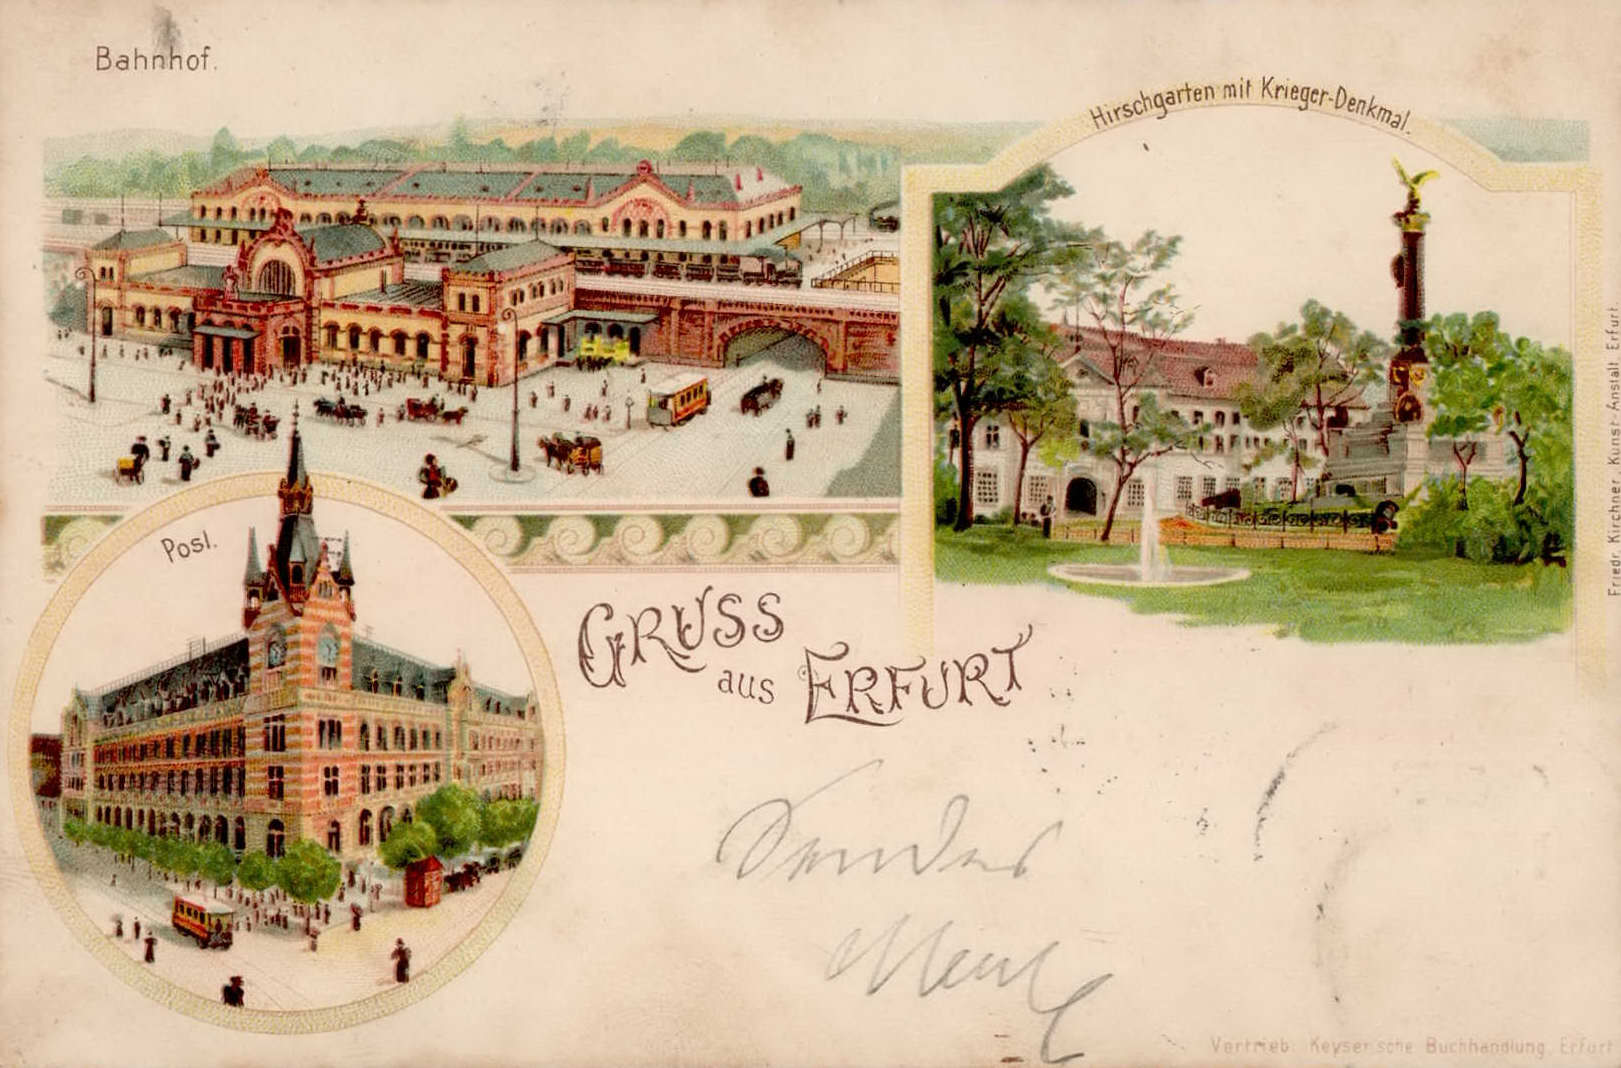 Bahnhof.
Hirschgarten mit Krieger-Denkmal.
Post.
GRUSS
aus ERFURT
Sendet
Friedr. Kirchner Kunst-Anstalt Erfurt
Vertrieb: Keyser'sche Buchhandlung, Erfurt